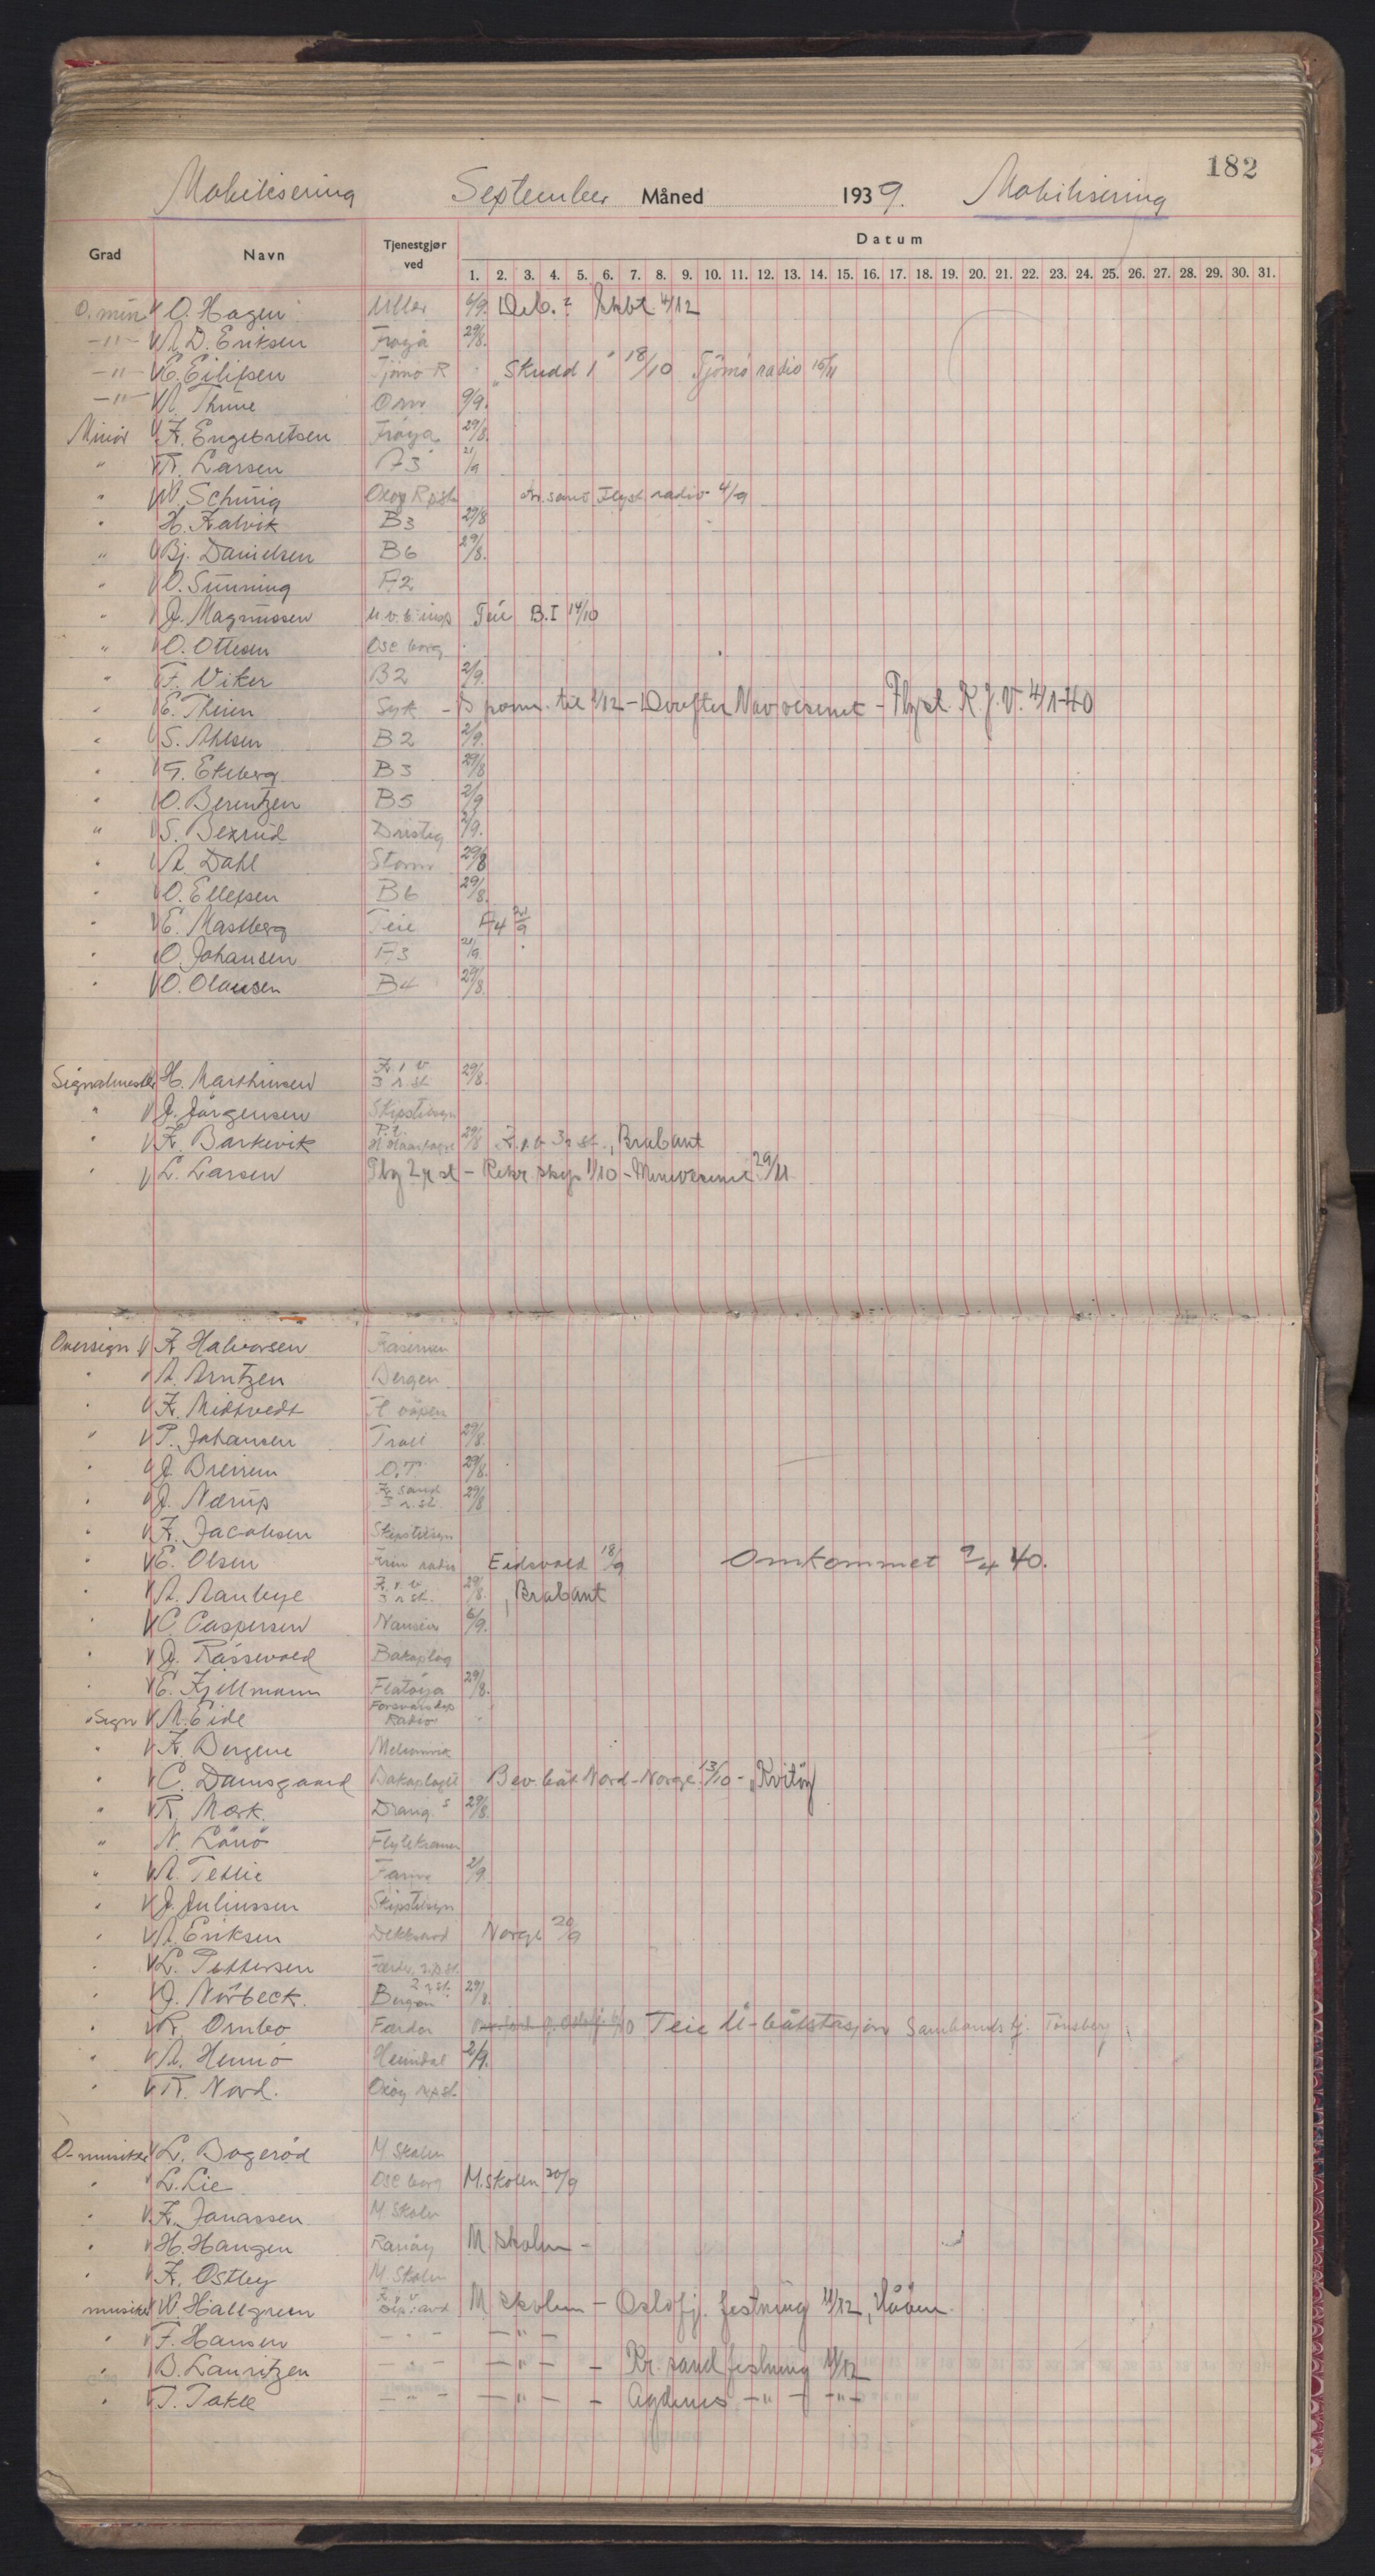 182
Mobilisering September Måned 1939. Mobilisering
Grad Navn Tjenestgjør ved Datum
1. 2. 3. 4. 5. 6. 7. 8. 9. 10. 11. 12. 13. 14. 15. 16. 17. 18. 19. 20. 21. 22. 23. 24. 25. 26. 27. 28. 29. 30. 31.
O. min O. Hagen Uller 6/9. 4/12
-"- A. D. Eriksen Frøya 29/8.
-"- E. Eilifsen Tjömö R „Skudd 1" 18/10 Tjömö radio 15/11
-"- A. Thune Orn 9/9.
Minör K. Engebretsen Fröya 29/8.
" R. Larsen A3 21/9
" W. Schürig Flyst. radio 4/9
" H. Kalvik B3 29/8
" Bj. Danielsen B6 29/8.
" O. Sünning A2
" J. Magnüssen U.v.b. insp Teie B.I 14/10
" O. Ottesen Ose borg
" F. Viker B2 2/9.
" E. Theien Syk - perm. til 1/12 - Derefter Navvesenet - Flyst. K.J.V. 4/1-40
" S. Ahlsen B2 2/9.
" G. Ekeberg B3 29/8
" O. Berntzen B5 2/9
" S. Bexrud Dristig 2/9.
" A. Dahl Storm 29/8
" O. Ellefsen B6 29/8.
" E. Mastberg Teie A4 21/9
" O. Johansen A3 21/9
" O. Olausen B4 29/8.
Signalmester H. Marthinsen K. 1. V 3 r. st. 29/8.
" J. Jörgensen Skipstilsyn
" K. Barkevik 29/8 K. 1. V 3 r. st., Brabant
" L. Larsen - Rekr. skip 1/10 - Minevesenet 29/11
Oversign K. Halvorsen Kasernen
" A. Arntzen Bergen
" K. Midtvedt H. våpen
" P. Johansen Troll 29/8.
" J. Breirem O.T. 29/8.
" J. Nærup Kr sand 3 r. st. 29/8
" K. Jacobsen Skipstilsyn
" E. Olsen radio Eidsvold 18/9 Omkommet 9/4 40.
" A. Aanbye K. 1. V 3 r st. 29/8. , Brabant
" C. Caspersen Nansen 6/9.
" J. Røssevold Bakaplag
" E. Kjellmann Flatöya 29/8.
" Sign A. Eide Forsvarsdep Radio
" K. Bergene Melsomvik
" C. Damsgaard Bakaplagel Bev. båt Nord-Norge 13/10 - „Kvitöy
" R. Mørk Draug. s 29/8.
" N. Lönö
" A. Tetlie Farm 2/9.
" J. Juliussen Skipstilsyn
" A. Eriksen Norge 20/9
" L. Pettersen Færder r.p.st.
" J. Nörbeck. Bergen 2 r. st. 29/8.
" R. Ornbo Færder Teie U-båtstasjon Sambandstj. Tönsberg.
" A. Hennö Heimdal 2/9.
" R. Nord. Oxöy r.p.st.
O-musiker L. Bogeröd M. Skolen
" L. Lie Ose borg M. skolen 20/9
" K. Jonassen M. Skolen
" H. Haugen Rauöy M skolen -
" K. Ostby M. Skolen
musiker W. Hallgreen K. 1. V M skolen - Oslofj. festning 11/12, Håöen.
" F. Hansen - " - - " -
" B. Lauritzen - " - - " - - Kr. sand festning 11/12
" T. Takle - " - - " - - Agdenes - " - - " -